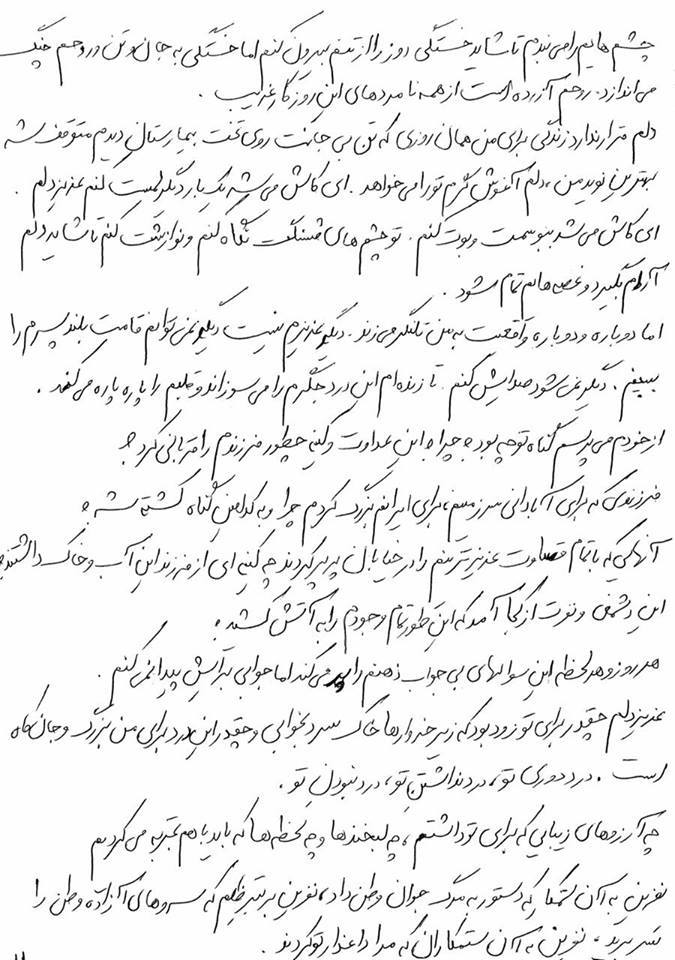 چشم هایم را می بندم تا شاید خستگی روز را از تنم بیرون کنم اما خستگی به جان و تن و روحم چنگ
می اندازد. روحم آزرده است از همه نامردهای این روزگار غریب .
دلم قرار ندارد زندگی برای من همان روزی که تن بی جانت روی تخت بیمارستان دیدم متوقف شد
بهترین نوید من ، دلم آغوش گرم تو را می خواهد . ای کاش می شد یک بار دیگر لمست کنم عزیز دلم .
ای کاش می شد ببوسمت و بویت کنم . تو چشم های قشنگت نگاه کنم و نوازشت کنم تا شاید دلم
آرام بگیرد و غصه هایم تمام شود .
اما دوباره و دوباره واقعیت به من تلنگر می زند . دیگر عزیزم نیست دیگر نمی توانم قامت بلند پسرم را
ببینم . دیگر نمی شود صدایش کنم . تا زنده ام این درد جگرم را می سوزاند و قلبم را پاره پاره می کند .
از خودم می پرسم گناه تو چه بود ؟ چرا این عداوت و کینه چطور فرزندم را قربانی کرد ؟
فرزندی که برای آبادانی سرزمینم ، برای ایرانم بزرگ کردم چرا و به کدامین گناه کشته شد ؟
آنهایی که با تمام قساوت عزیزترینم را در خیابان پرپر کردند چه کینه ای از فرزند این آب و خاک داشتند
این دشمنی و نفرت از کجا آمد که این طور تمام وجودم را به آتش کشید ؟
هر روز و هر لحظه این سوالهای بی جواب ذهنم را پر می کند اما جوابی برایش پیدا نمی کنم .
عزیز دلم چقدر برای تو زود بود که زیر خروارها خاک سرد بخوابی و چقدر این درد برای من بزرگ و جان کاه
است . درد دوری تو ، درد نداشتن تو ، درد نبودن تو .
چه آرزوهای زیبایی که برای تو داشتم ، چه لبخندها و چه لحظه ها که باید با هم تجربه می کردیم
نفرین به آن ستمگار که دستور به مرگ جوان وطن داد ، نفرین بر تبر ظلم که سروهای آزاده وطن را
سر برید ، نفرین به آن ستمکاران که مرا داغدار تو کردند .